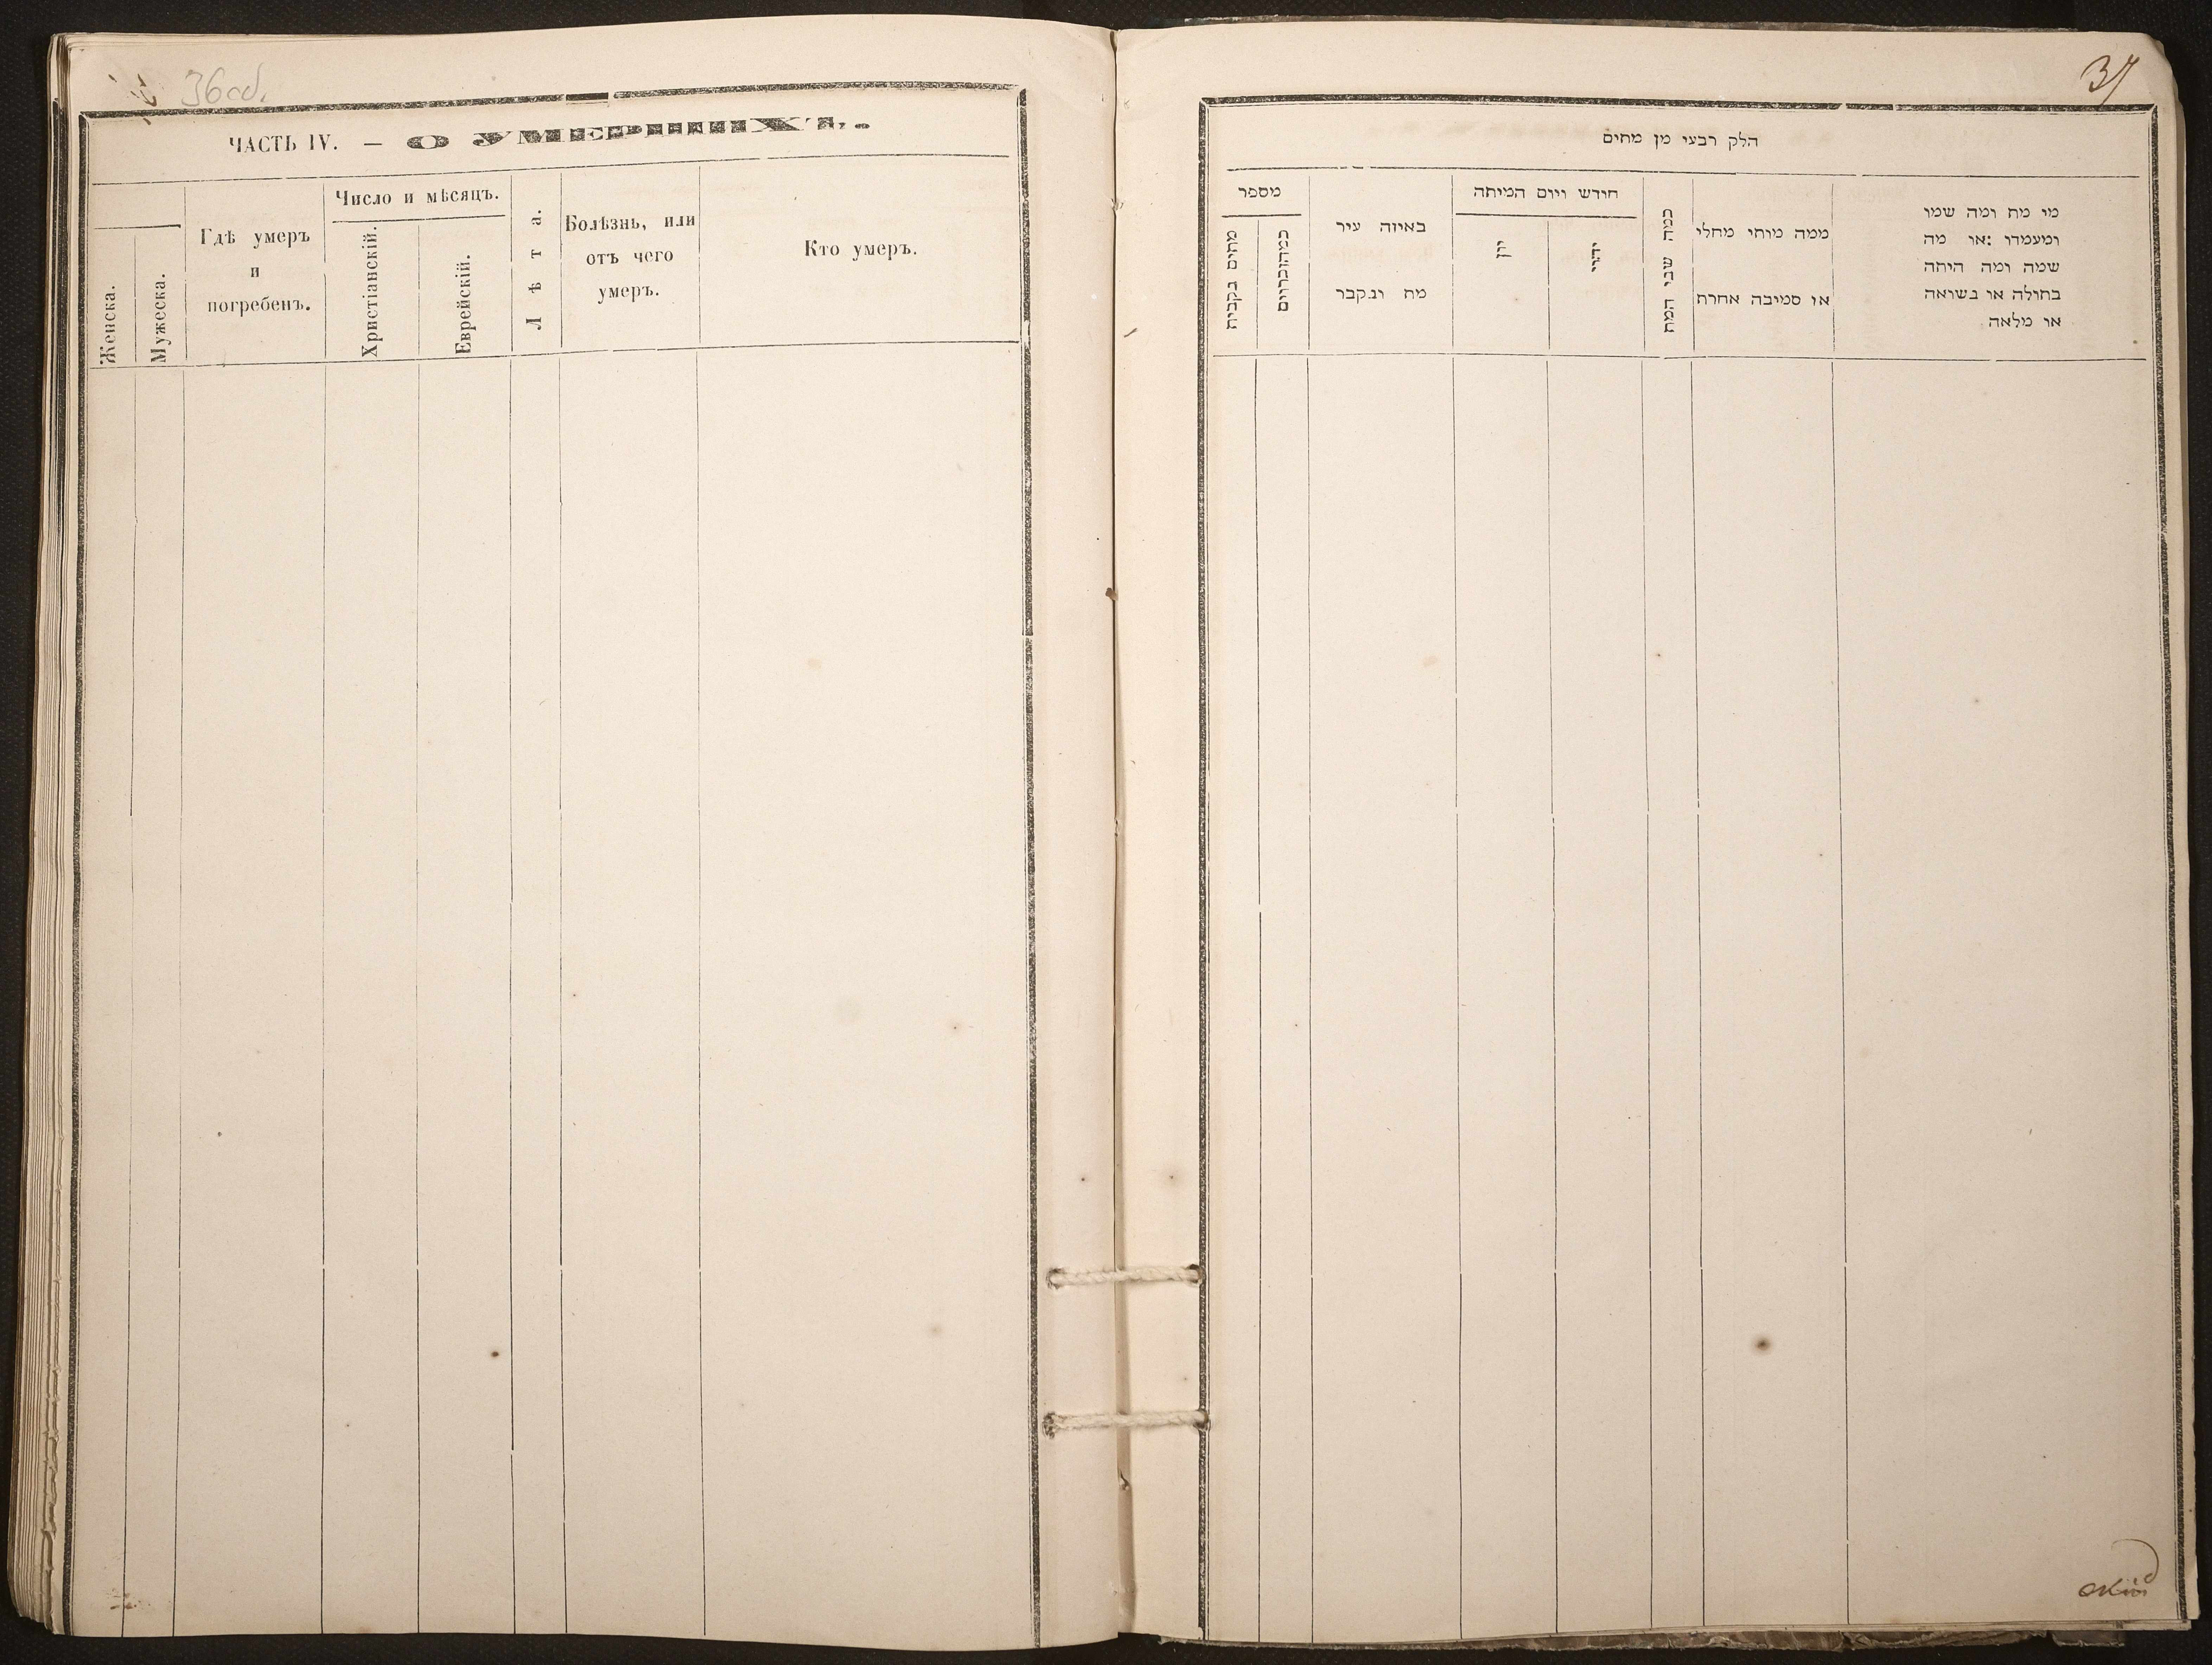 36об.
ЧАСТЬ IV. — О УМЕРШИХЪ.
Женска.
Мужеска.
Гдѣ умеръ
и
погребенъ.
Число и мѣсяцъ.
Христіанскій.
Еврейскій.
Лѣта.
Болѣзнь, или
отъ чего
умеръ.
Кто умеръ.
37
הלק רבעי מן מתים
מספר
באיזה עיר
מת ונקבר
חודש ויום המיתה
יון
יהודי
כמה שני המת
ממה מותי מחלי
או סמיבה אחרת
מי מת ומה שמו
ומעמדו :או מה
שמה ומה היתה
בתולה או בשואה
או מלאה